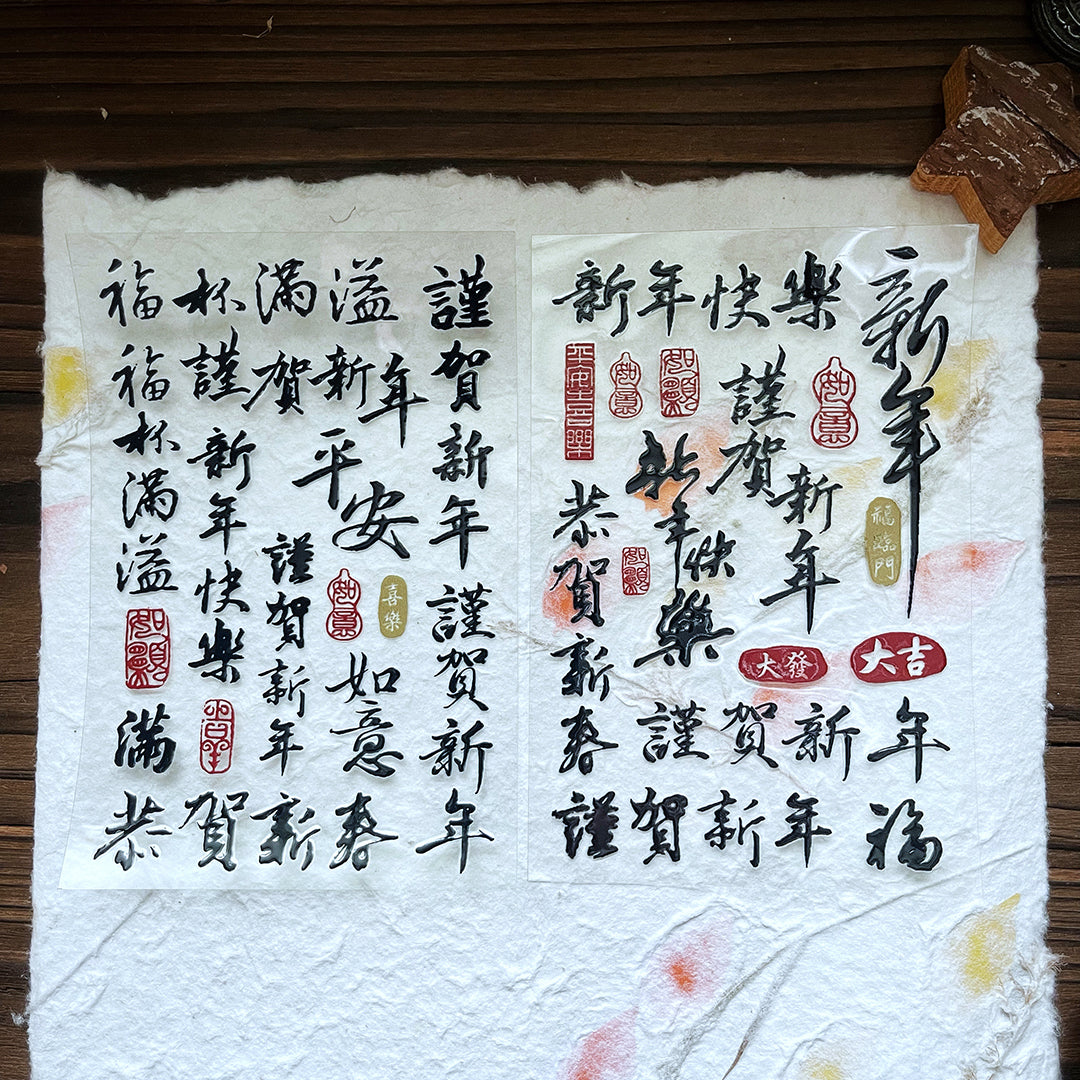 福杯滿溢
謹賀新年
福杯滿溢
謹賀新年
平安
新年快樂
謹賀新年
謹賀新年
如意
喜樂
如意
如願
滿
恭賀新春
新年快樂
新年
平安喜樂
如意
如願
謹賀新年
如意
福臨門
新年快樂
恭賀新春
如願
大發
大吉
謹賀新年
年
謹賀新年
福